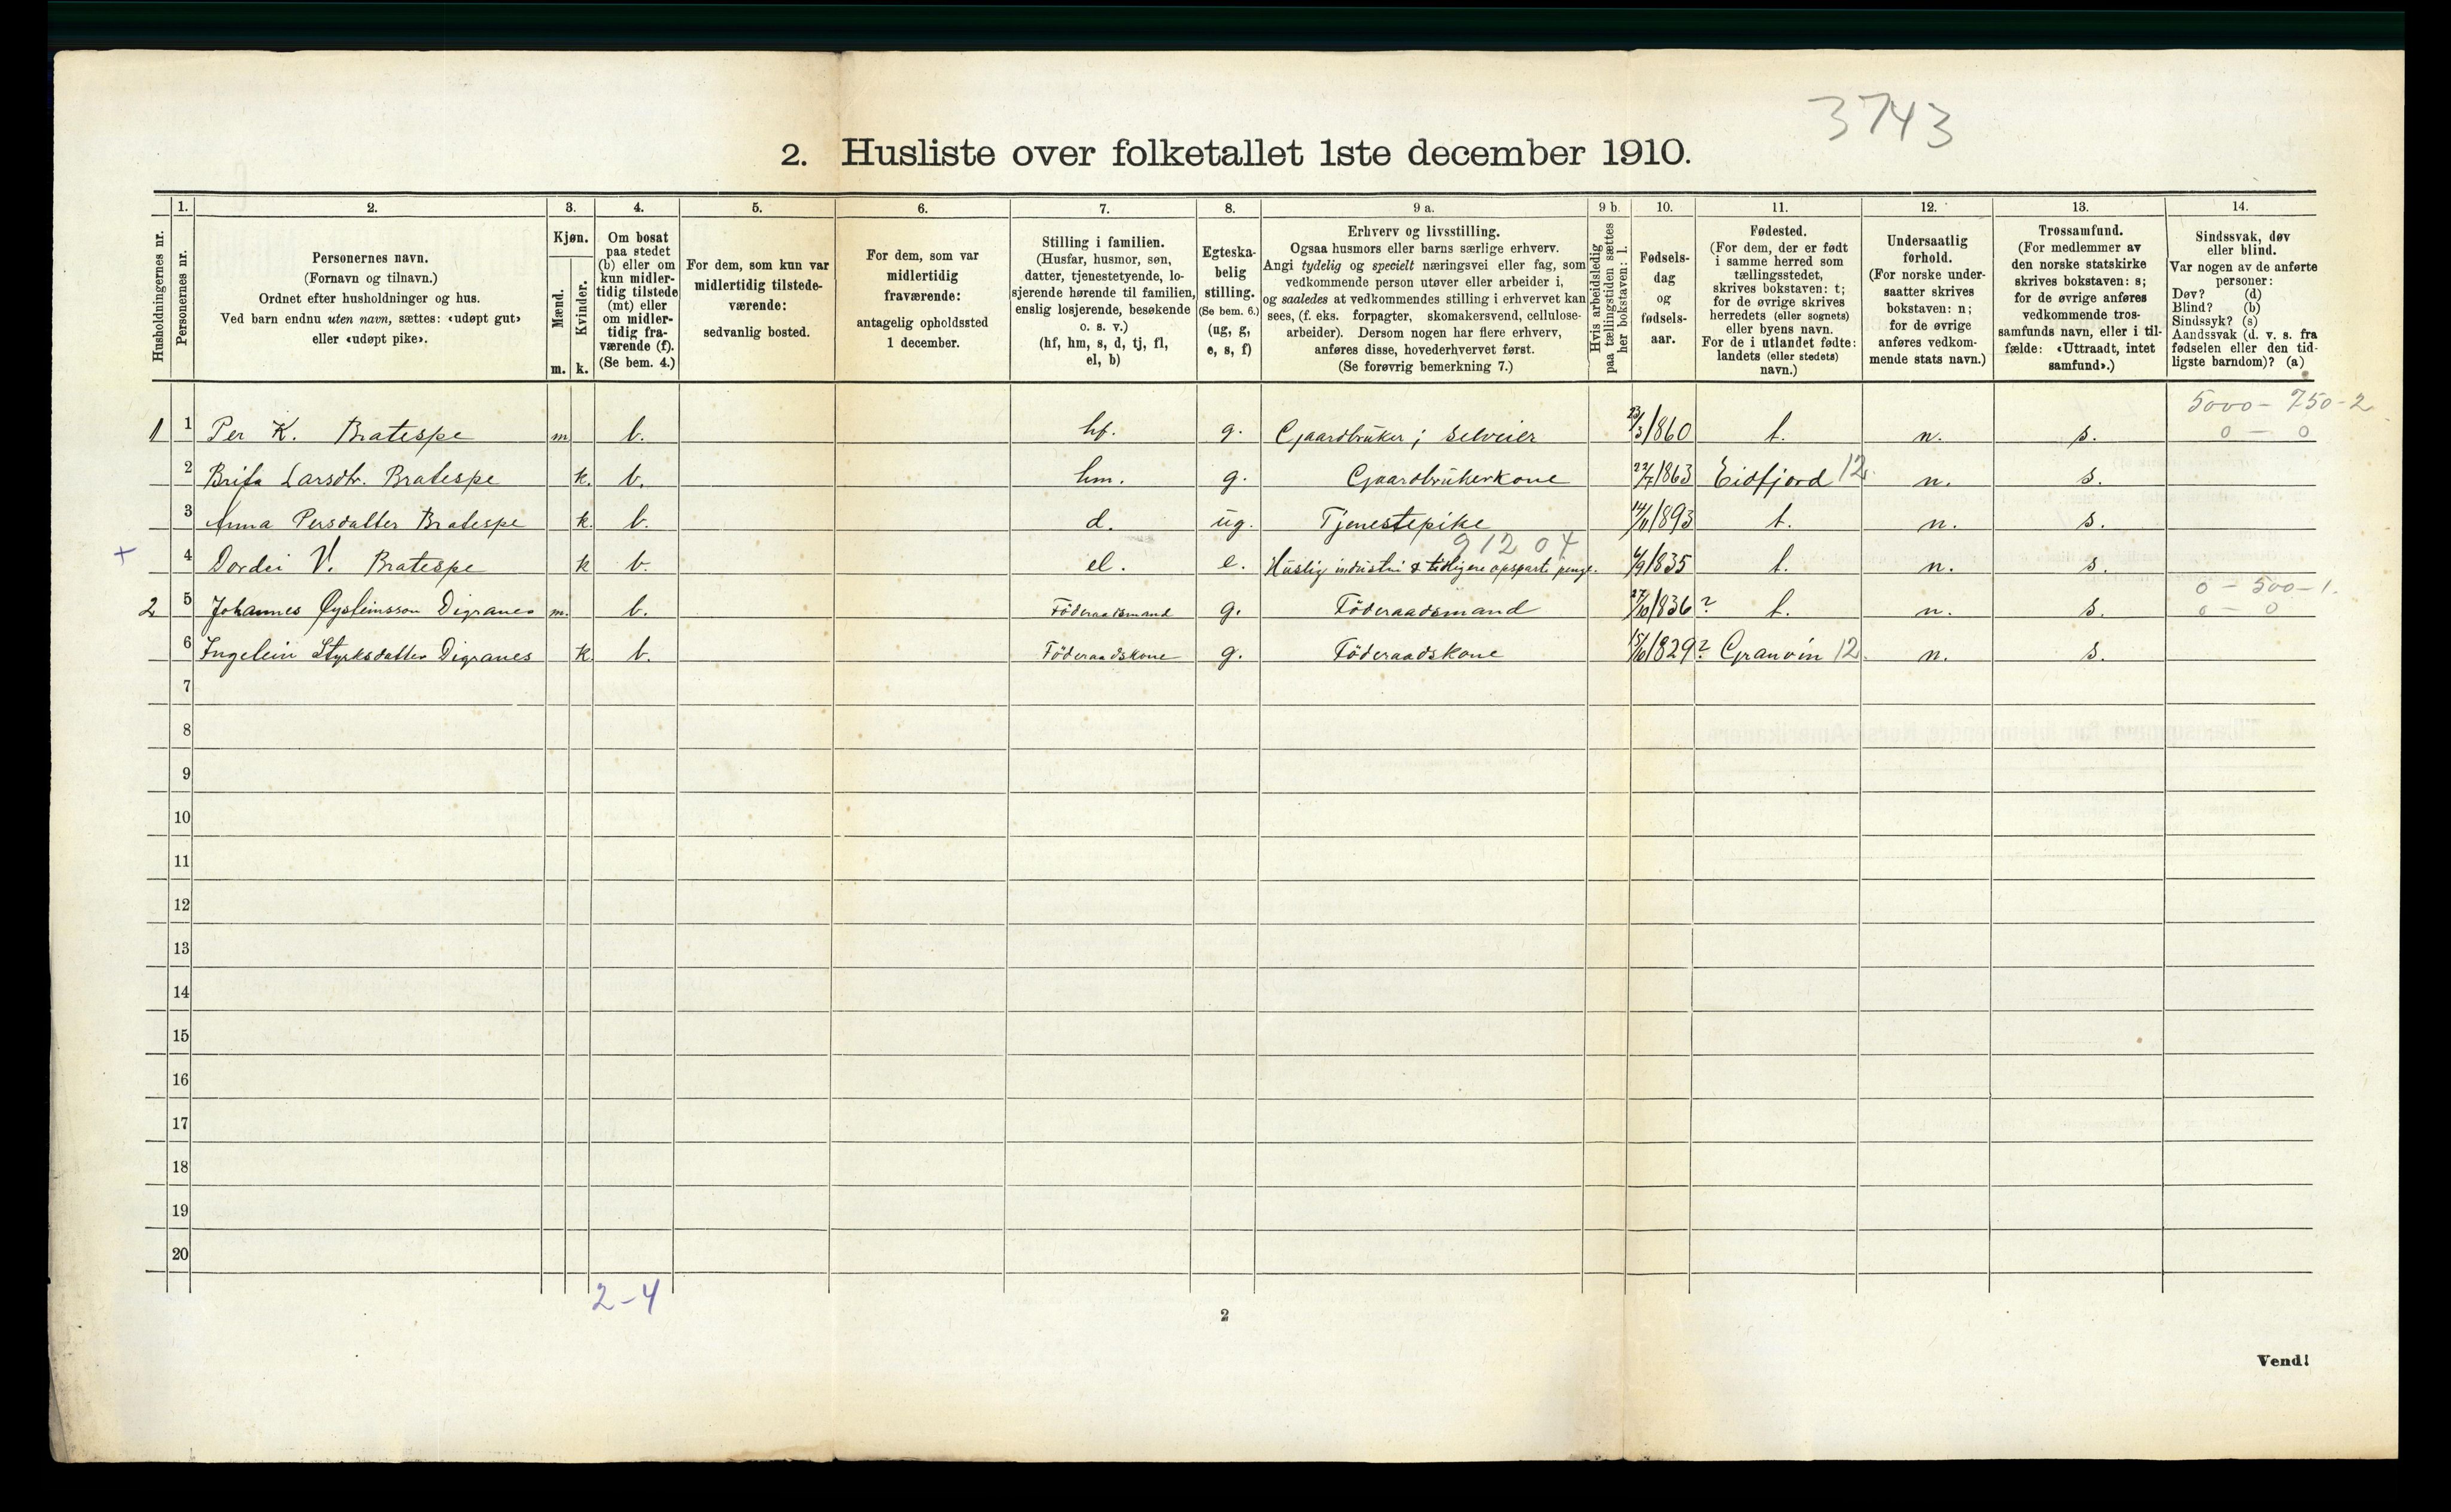 3743
2. Husliste over folketallet 1ste december 1910.
Husholdningernes nr.
1.
Personernes nr.
2.
Personernes navn.
(Fornavn og tilnavn.)
Ordnet efter husholdninger og hus.
Ved barn endnu uten navn, sættes: «udøpt gut»
eller «udøpt pike».
3.
Kjøn.
Mænd.
Kvinder.
m. k.
4.
Om bosat
paa stedet
(b) eller om
kun midler-
tidig tilstede
(mt) eller
om midler-
tidig fra-
værende (f).
(Se bem. 4.)
5.
For dem, som kun var
midlertidig tilstede-
værende:
sedvanlig bosted.
6.
For dem, som var
midlertidig
fraværende:
antagelig opholdssted
1 december.
7.
Stilling i familien.
(Husfar, husmor, søn,
datter, tjenestetyende, lo-
sjerende hørende til familien,
enslig losjerende, besøkende
o. s. v.)
(hf, hm, s, d, tj, fl,
el, b)
8.
Egteska-
belig
stilling.
(Se bem. 6.)
(ug, g,
e, s, f)
9 a.
Erhverv og livsstilling.
Ogsaa husmors eller barns særlige erhverv.
Angi tydelig og specielt næringsvei eller fag, som
vedkommende person utøver eller arbeider i,
og saaledes at vedkommendes stilling i erhvervet kan
sees, (f. eks. forpagter, skomakersvend, cellulose-
arbeider). Dersom nogen har flere erhverv,
anføres disse, hovederhvervet først.
(Se forøvrig bemerkning 7.)
9 b.
Hvis arbeidsledig
paa tællingstiden sættes
her bokstaven: l.
10.
Fødsels-
dag
og
fødsels-
aar.
11.
Fødested.
(For dem, der er født
i samme herred som
tællingsstedet,
skrives bokstaven: t;
for de øvrige skrives
herredets (eller sognets)
eller byens navn.
For de i utlandet fødte:
landets (eller stedets)
navn.)
12.
Undersaatlig
forhold.
(For norske under-
saatter skrives
bokstaven: n;
for de øvrige
anføres vedkom-
mende stats navn.)
13.
Trossamfund.
(For medlemmer av
den norske statskirke
skrives bokstaven: s;
for de øvrige anføres
vedkommende tros-
samfunds navn, eller i til-
fælde: «Uttraadt, intet
samfund».)
14.
Sindssvak, døv
eller blind.
Var nogen av de anførte
personer:
Døv? (d)
Blind? (b)
Sindssyk? (s)
Aandssvak (d. v. s. fra
fødselen eller den tid-
ligste barndom)? (a)
5000 - 750 - 2
1 1 Per K. Bratespe m b. hf. g. Gaardbruker; selveier 23/3/860 t. n. s. 0 - 0
2 Brita Larsdtr. Bratespe k. b. hm. g. Gaardbrukerkone 22/7/863 Eidfjord 12. n. s.
3 Anna Persdatter Bratespe k. b. d. ug. Tjenestepike 14/11/893 t. n. s.
91204
+ 4 Dordei V. Bratespe k b. el. e. Huslig industri & tidligere opsparte penge. 4/9/835 t. n. s.
0 - 500 - 1.
2 5 Johannes Øysteinsson Digranes m. b. Föderaadsmand g. Föderaadsmand 27/10/836? t. n. s. 0 - 0
6 Ingelein Styrksdatter Digranes k b. Föderaadskone g. Föderaadskone 15/10/829? Granvin 12. n. s.
7
8
9
10
11
12
13
14
15
16
17
18
19
20
2-4
2
Vend!